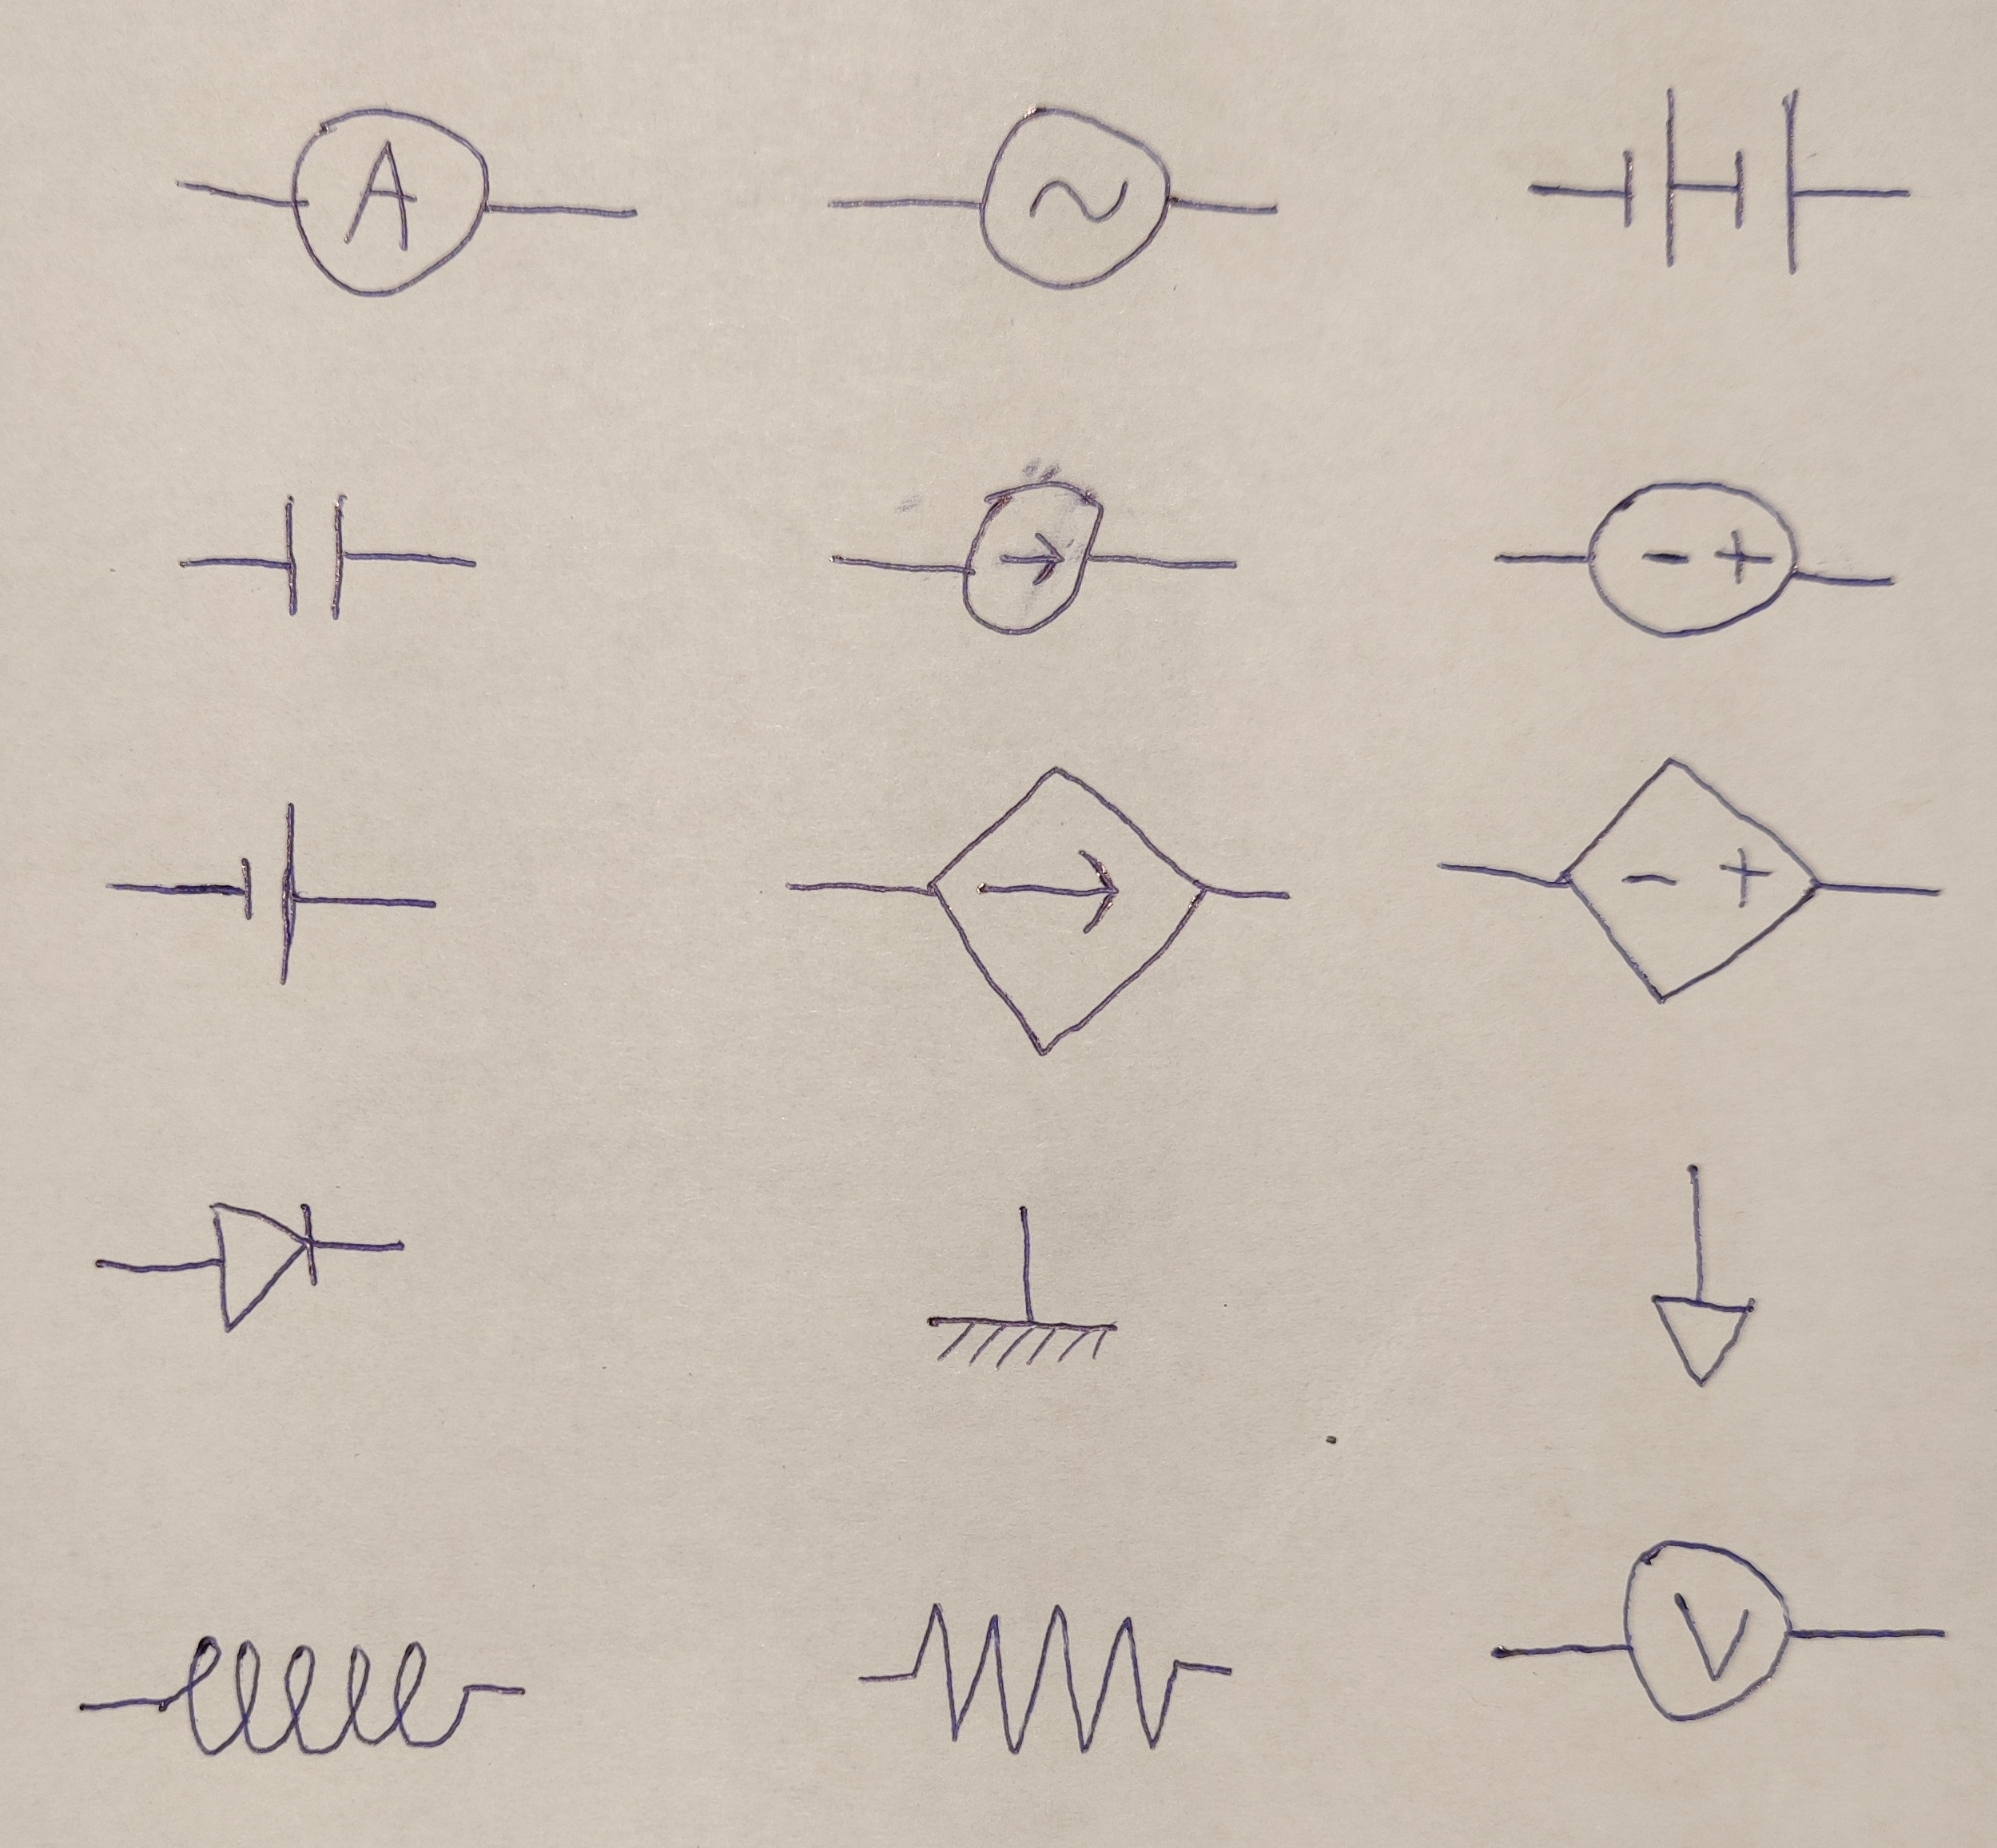 A ~
- +
- +
V